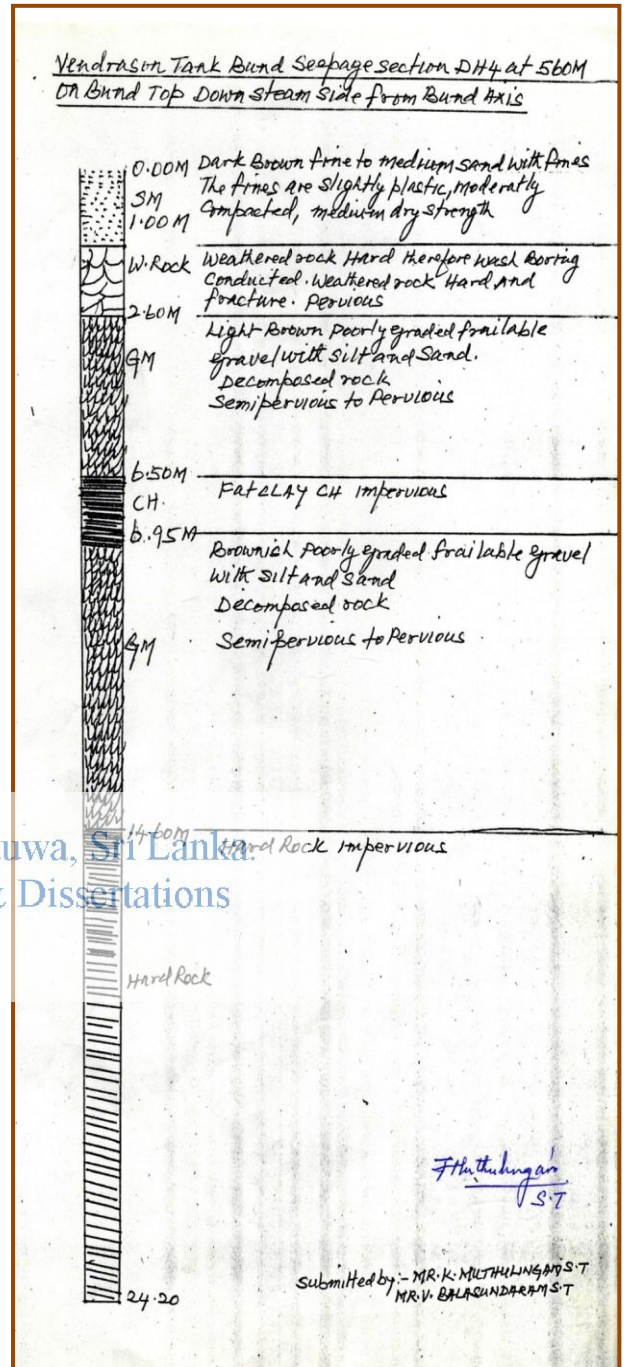 Vendrason Tank Bund Seepage section DH4 at 560M
on Bund Top Down steam side from Bund Axis
0.00M Dark Brown fine to medium sand with fines
SM The fines are slightly plastic, moderatly
1.00M Compacted, medium dry strength
W.Rock Weathered rock Hard therefore wash Boring
Conducted. Weathered rock Hard and
fracture. Pervious
2.60M
Light Brown Poorly graded frailable
GM gravel with silt and sand.
Decomposed rock
Semipervious to Pervious
6.50M
CH. Fat CLAY CH Impervious
6.95M
Brownish Poorly graded frailable gravel
with silt and sand
Decomposed rock
GM Semipervious to Pervious
14.60M
Hard Rock Impervious
uwa, Sri Lanka.
& Dissertations
Hard Rock
S.T
Submitted by:- MR.K.MUTHULINGAM S.T
MR.V. BALASUNDARAM S.T
24.20